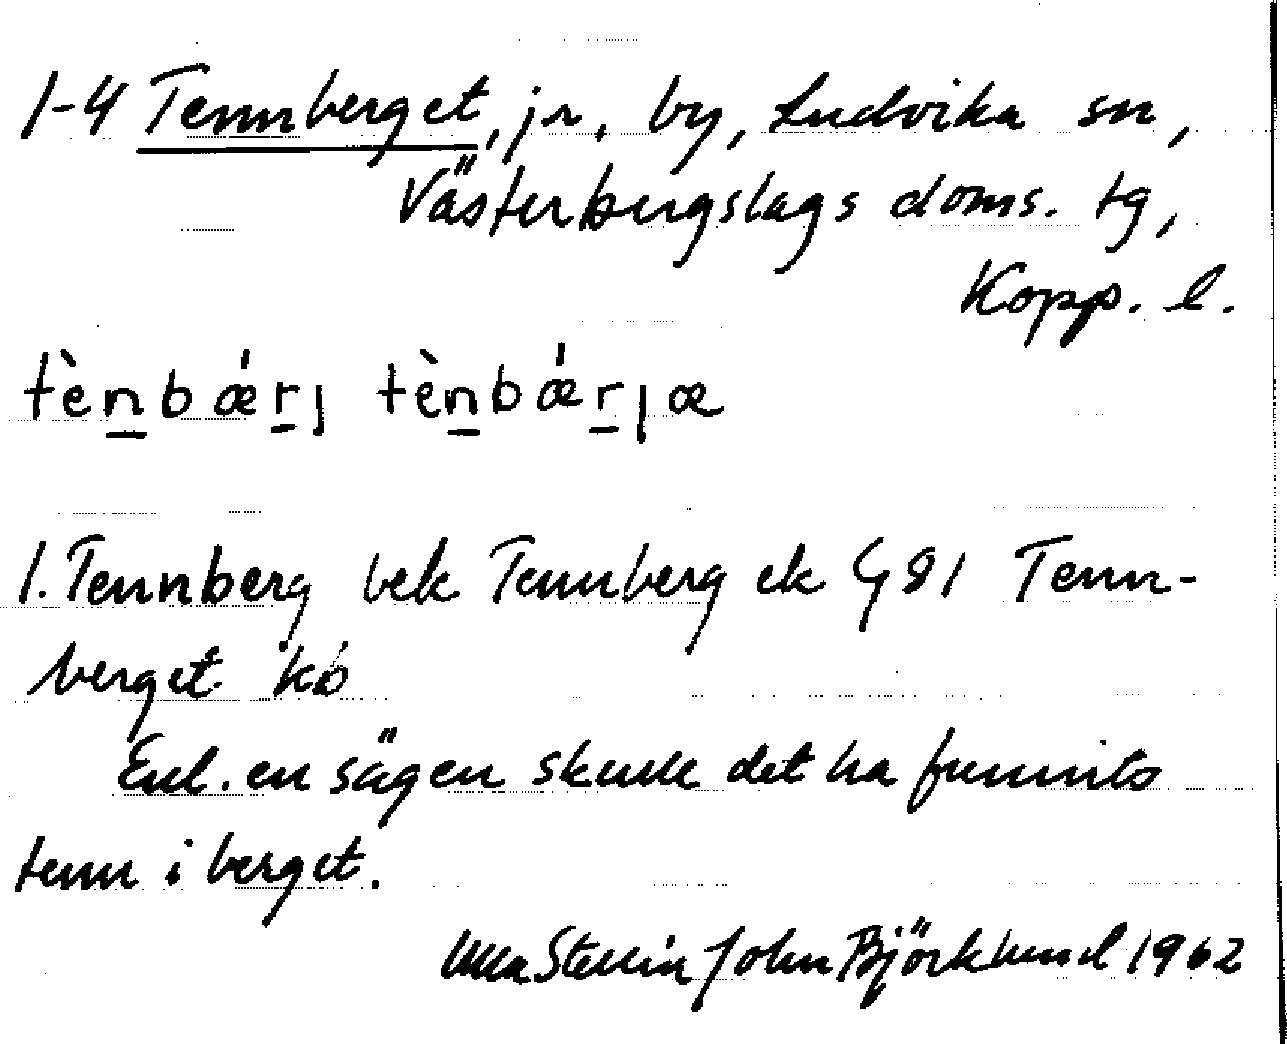 1-4 Tennberget, jr, by, Ludvika sn,
Västerbergslags doms. tg,
Kopp. l.
tènbǽrj tènbǽrjæ
1. Tennberg bek Tennberg ek G 81 Tenn-
berget kb
Enl. en sägen skulle det ha funnits
tenn i berget.
Ulla Stenin John Björklund 1962